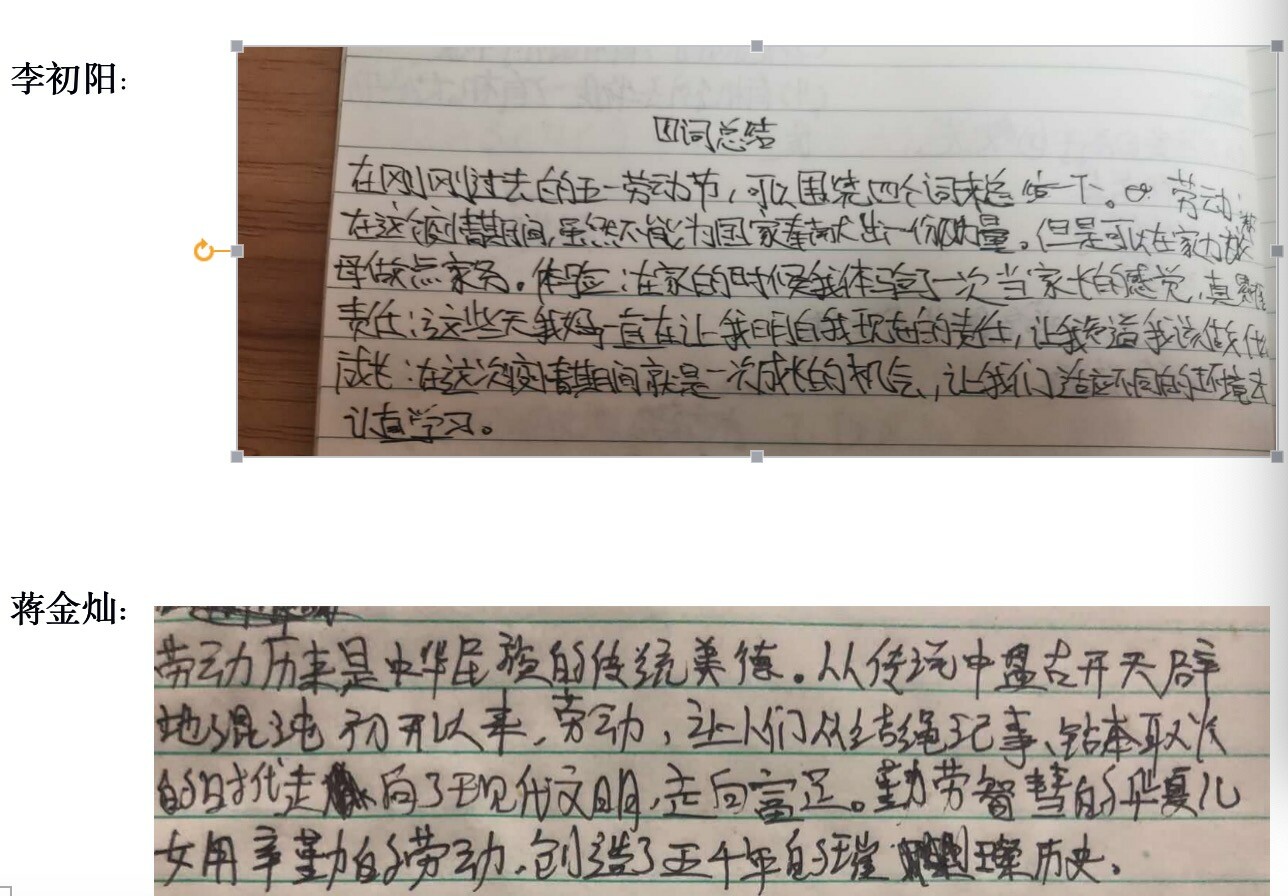 李初阳：
四词总结
在刚刚过去的五一劳动节，可以围绕四个词来总结一下。劳动：
在这次疫情期间，虽然不能为国家奉献出一份力量。但是可以在家力
母做点家务。体验：在家的时候我体验了一次当家长的感觉，真
责任：这些天我妈一直在让我明白我现在的责任，让我知道我该做什
成长：在这次疫情期间就是一次成长的机会，让我们适应不同的环境去
认真学习。
蒋金灿：
劳动历来是中华民族的传统美德。从传说中盘古开天辟
地混沌初开以来，劳动，让人们从结绳记事、钻木取火
的时代走向了现代文明，走向富足。勤劳智慧的华夏儿
女用辛勤的劳动，创造了五千年的璀璨历史。